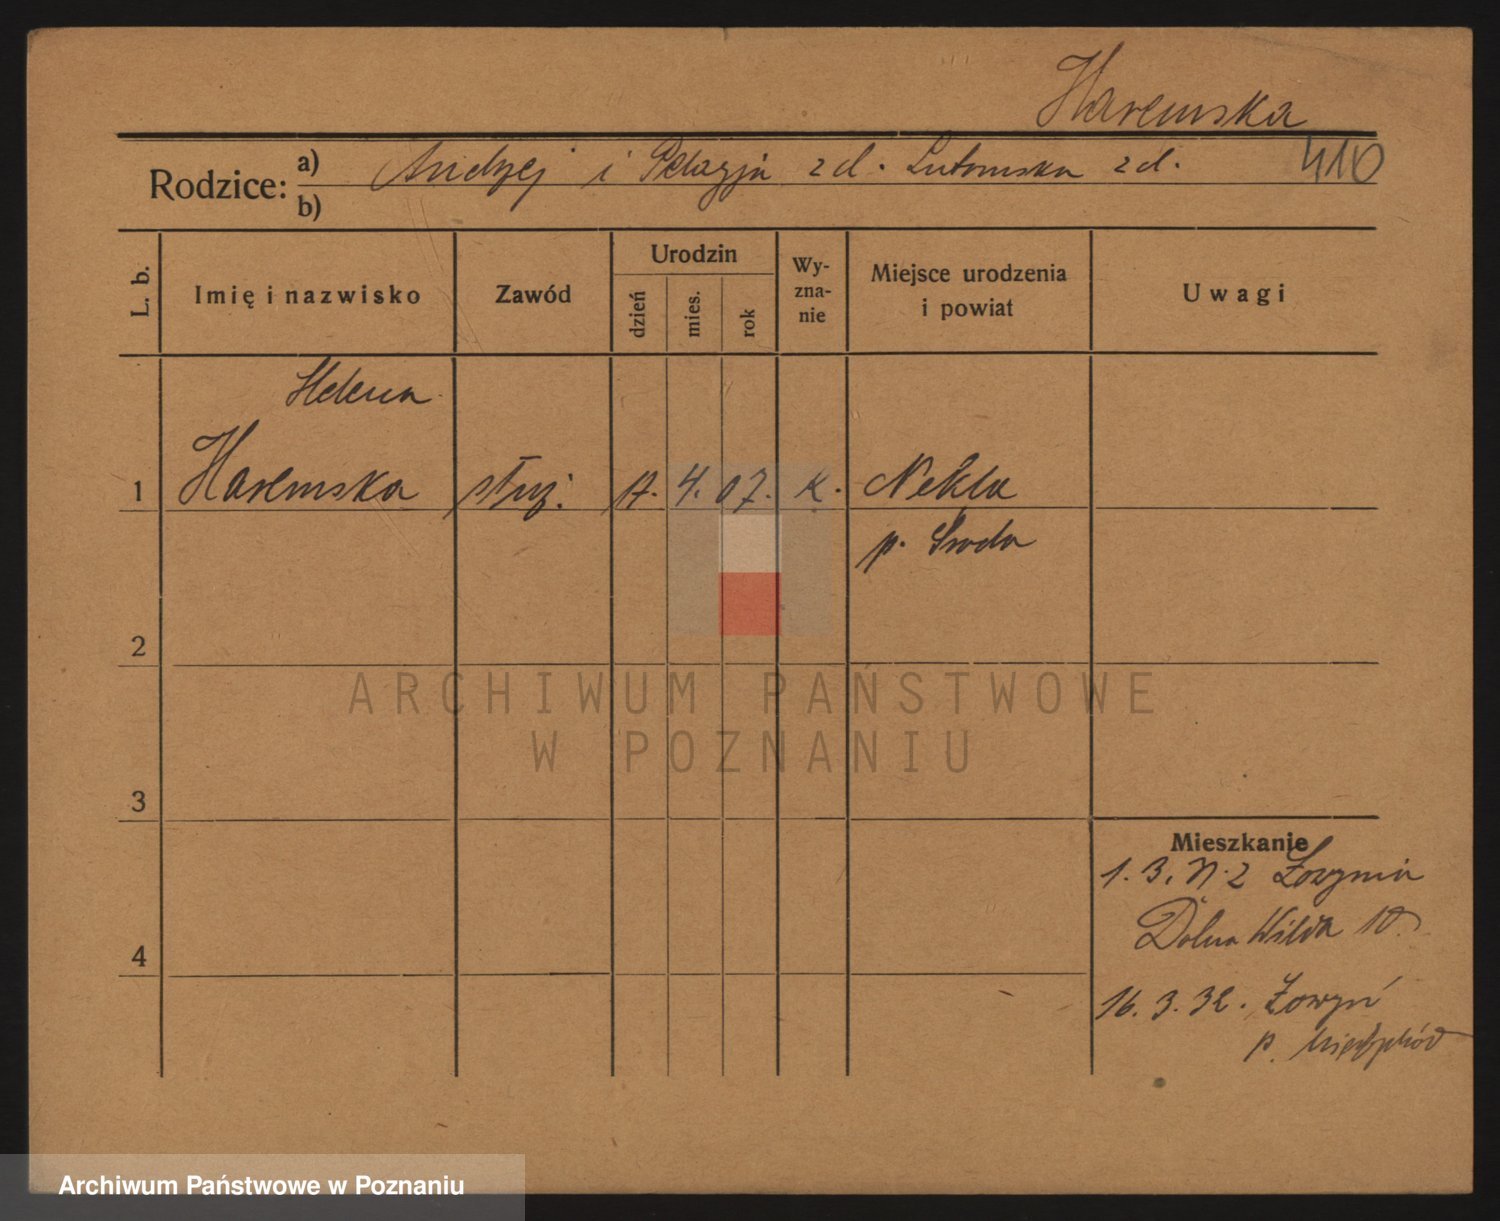 Haremska
410
Rodzice: a) Andrzej i Pelagja z d. Lutomska z d.
b)
L. b. Imię i nazwisko Zawód Urodzin dzień mies. rok Wyznanie Miejsce urodzenia i powiat Uwagi
Helena
1 Haremska służ. 4. 07. K. Nekla
p. Środa
2
ARCHIWUM PAŃSTWOWE
W POZNANIU
3
Mieszkanie
1. 3.
Dolna Wilda 10.
4
16. 3. 32.
p.
Archiwum Państwowe w Poznaniu